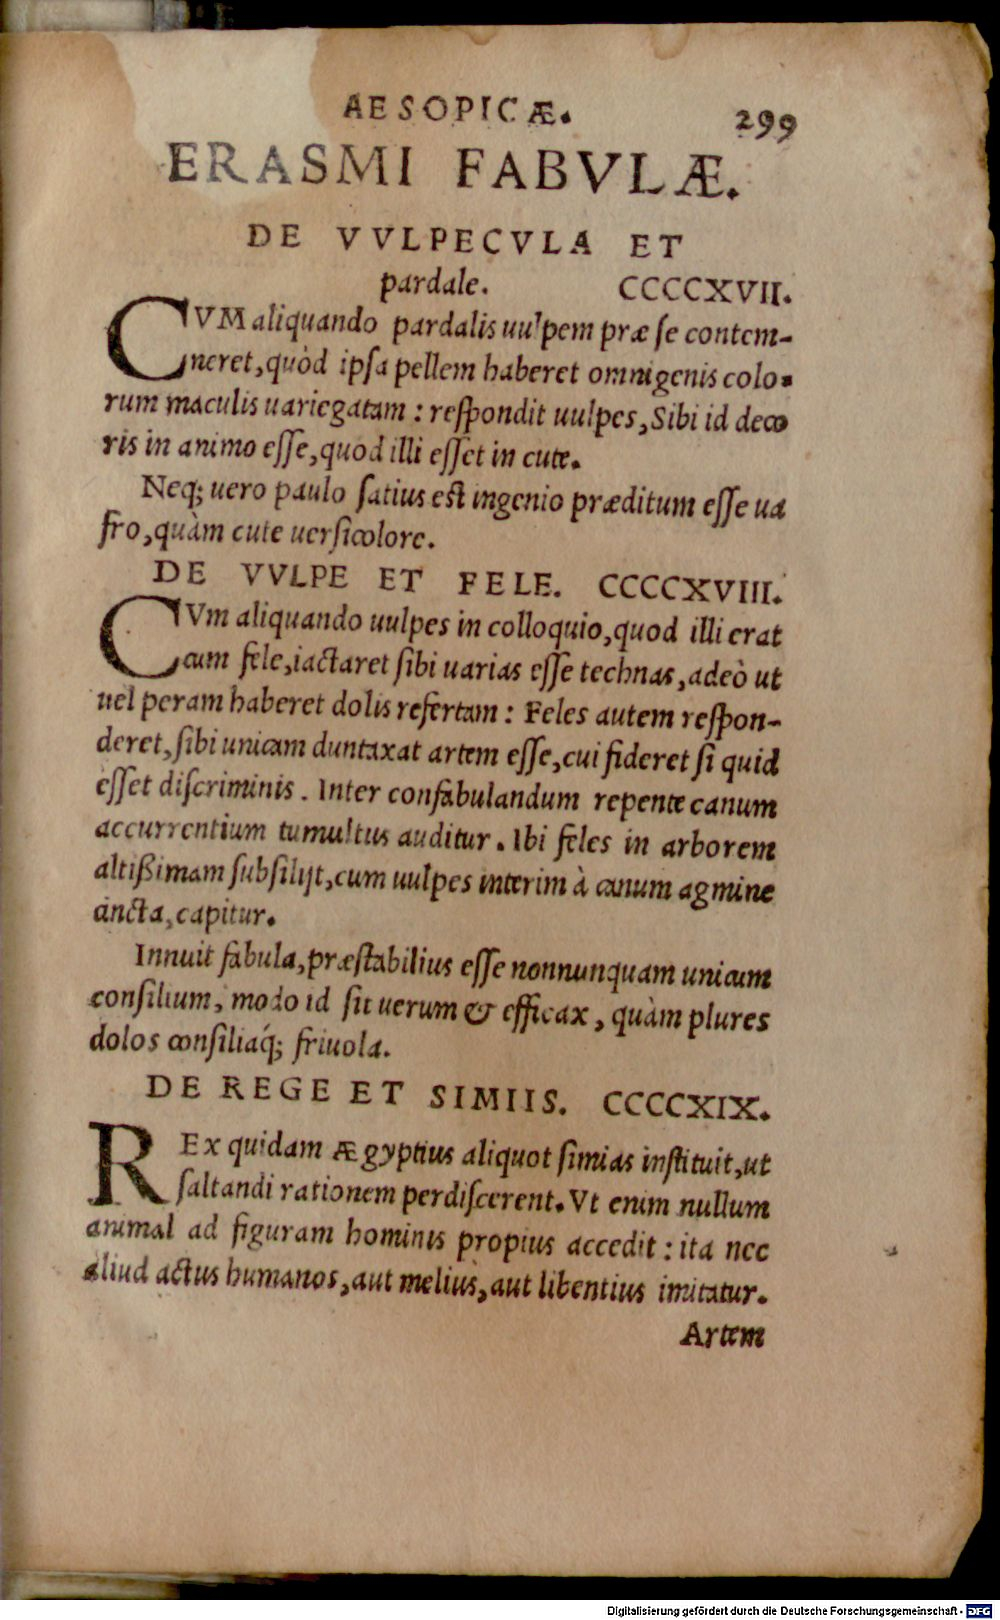 AESOPICÆ. 299
ERASMI FABVLÆ.
DE VVLPECVLA ET
pardale. CCCCXVII.
CVM aliquando pardalis uulpem præ se contem-
neret, quòd ipsa pellem haberet omnigenis colo-
rum maculis uariegatam: respondit uulpes, Sibi id deco
ris in animo esse, quod illi esset in cute.
Neq; uero paulo satius est ingenio præditum esse ua
fro, quàm cute uersicolore.
DE VVLPE ET FELE. CCCCXVIII.
CVm aliquando uulpes in colloquio, quod illi erat
cum fele, iactaret sibi uarias esse technas, adeò ut
uel peram haberet dolis refertam: Feles autem respon-
deret, sibi unicam duntaxat artem esse, cui fideret si quid
esset discriminis. Inter confabulandum repente canum
accurrentium tumultus auditur. Ibi feles in arborem
altißimam subsilijt, cum uulpes interim à canum agmine
cincta, capitur.
Innuit fabula, præstabilius esse nonnunquam unicum
consilium, modo id sit uerum & efficax, quàm plures
dolos consiliaq́; friuola.
DE REGE ET SIMIIS. CCCCXIX.
REx quidam Ægyptius aliquot simias instituit, ut
saltandi rationem perdiscerent. Vt enim nullum
animal ad figuram hominis propius accedit: ita nec
aliud actus humanos, aut meliùs, aut libentius imitatur.
Artem
Digitalisierung gefördert durch die Deutsche Forschungsgemeinschaft - DFG